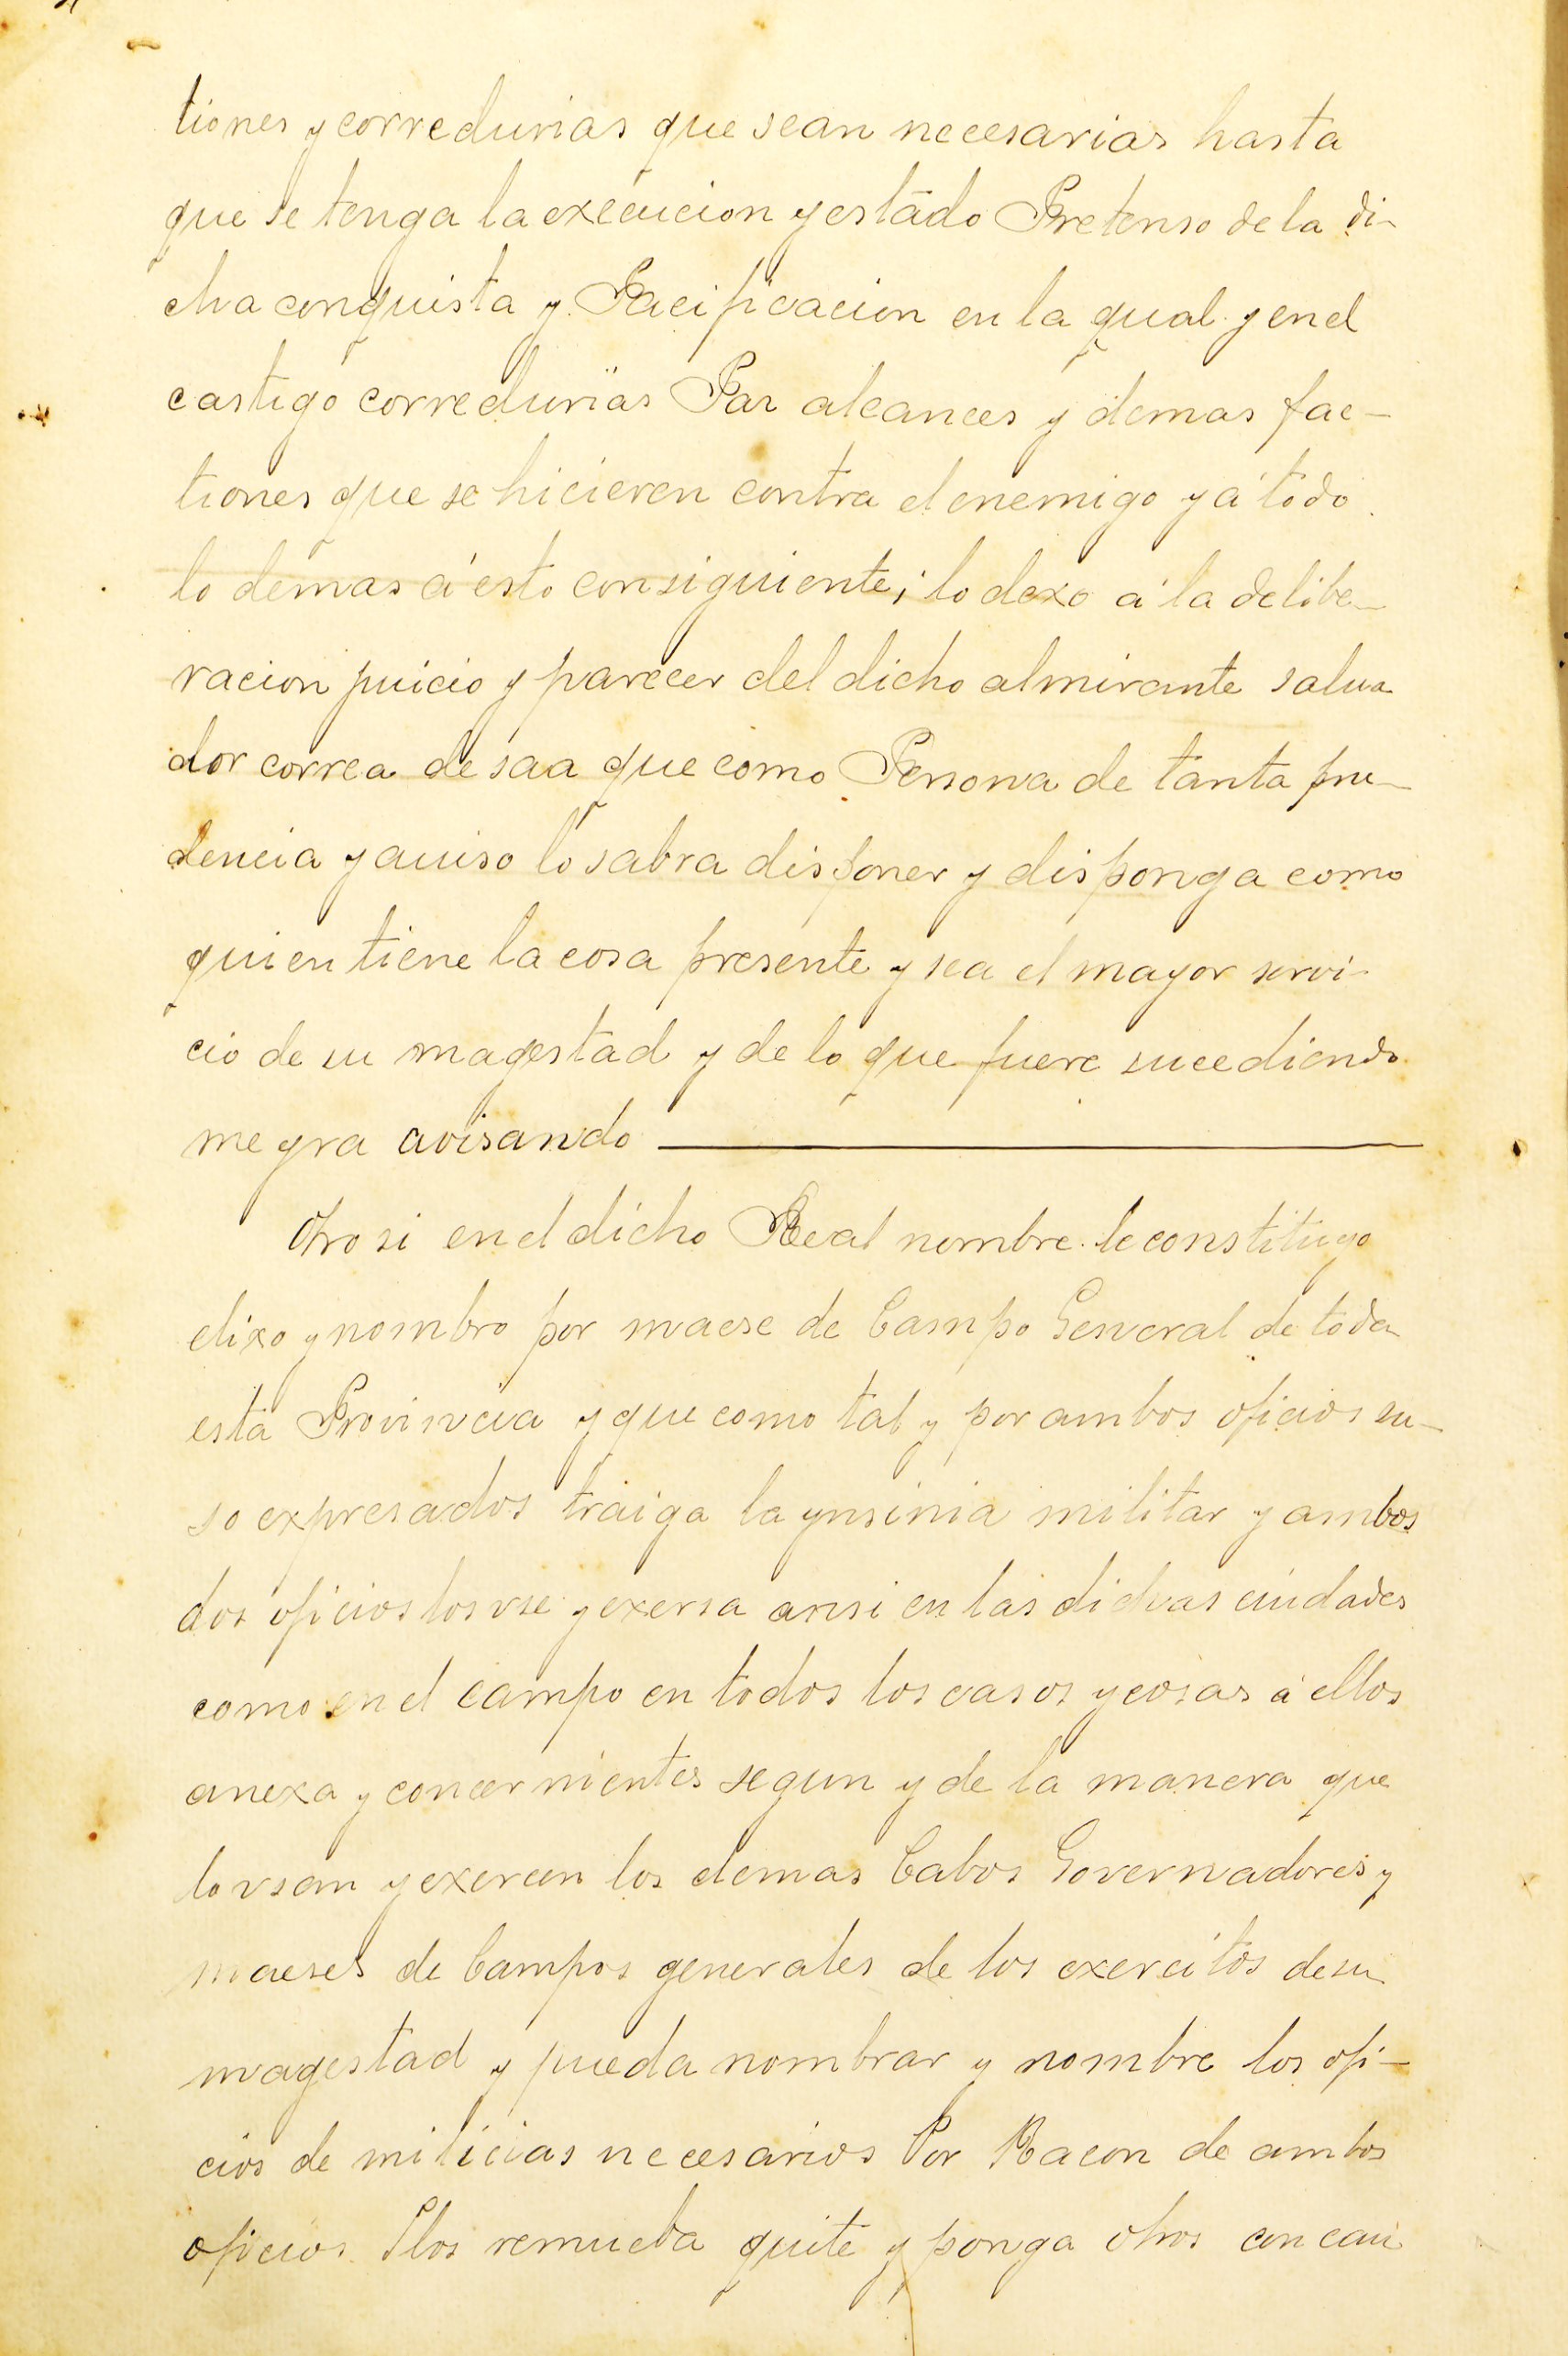 tiones y corredurias que sean necesarias hasta
que se tenga la execucion y estado Pretenso de la di-
cha conquista y Pacificacion en la qual y en el
castigo corredurias Par alcances y demas fac-
tiones que se hicieren contra el enemigo y á todo
lo demas á esto consiguiente; lo dexo á la delibe-
racion juicio y parecer del dicho almirante salua
dor correa de saa que como Persona de tanta pru-
dencia y auiso lo sabra disponer y disponga como
quien tiene la cosa presente y sea el mayor servi-
cio de su magestad y de lo que fuere sucediendo
me yra avisando
Otro si en el dicho Real nombre le constituyo
elixo y nombro por maese de Campo General de toda
esta Provincia y que como tal y por ambos oficios su-
so expresados traiga la ynsinia militar y ambos
dos oficios los vse y exersa ansi en las dichas ciudades
como en el campo en todos los casos y cosas á ellos
anexa y concernientes segun y de la manera que
lo vsan y exercen los demas Cabos Governadores y
maeses de Campos generales de los exercitos de su
magestad y pueda nombrar y nombre los ofi-
cios de milicias necesarios Por Racon de ambos
oficios Ylos remueba quite y ponga otros con cau